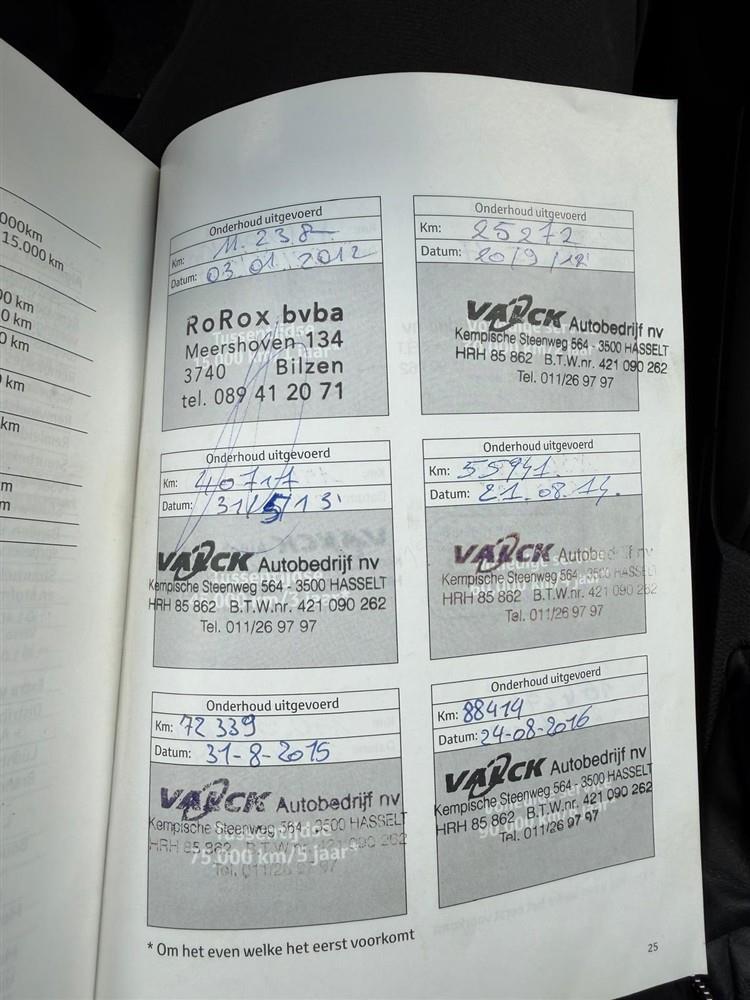 000km
15.000 km
00 km
0 km
0 km
km
km
m
m
Onderhoud uitgevoerd
Km: 11.238
Datum: 03.01.2012
RoRox bvba
Meershoven 134
3740 Bilzen
tel. 089 41 20 71
Onderhoud uitgevoerd
Km: 25272
Datum: 20/9/12
VALCK Autobedrijf nv
Kempische Steenweg 564 - 3500 HASSELT
HRH 85 862 B.T.W.nr. 421 090 262
Tel. 011/26 97 97
Onderhoud uitgevoerd
Km: 40717
Datum: 31/5/13
VALCK Autobedrijf nv
Kempische Steenweg 564 - 3500 HASSELT
HRH 85 862 B.T.W.nr. 421 090 262
Tel. 011/26 97 97
Onderhoud uitgevoerd
Km: 55941
Datum: 21.08.14.
VALCK Autobedrijf nv
Kempische Steenweg 564 - 3500 HASSELT
HRH 85 862 B.T.W.nr. 421 090 262
Tel. 011/26 97 97
Onderhoud uitgevoerd
Km: 72339
Datum: 31-8-2015
VALCK Autobedrijf nv
Kempische Steenweg 564 - 3500 HASSELT
Tussentijdse
HRH 85 862 B.T.W.nr. 421 090 262
75.000 km/5 jaar*
Tel. 011/26 97 97
Onderhoud uitgevoerd
Km: 88414
Datum: 24-08-2016
VALCK Autobedrijf nv
Kempische Steenweg 564 - 3500 HASSELT
HRH 85 862 B.T.W.nr. 421 090 262
Tel. 011/26 97 97
* Om het even welke het eerst voorkomt
25